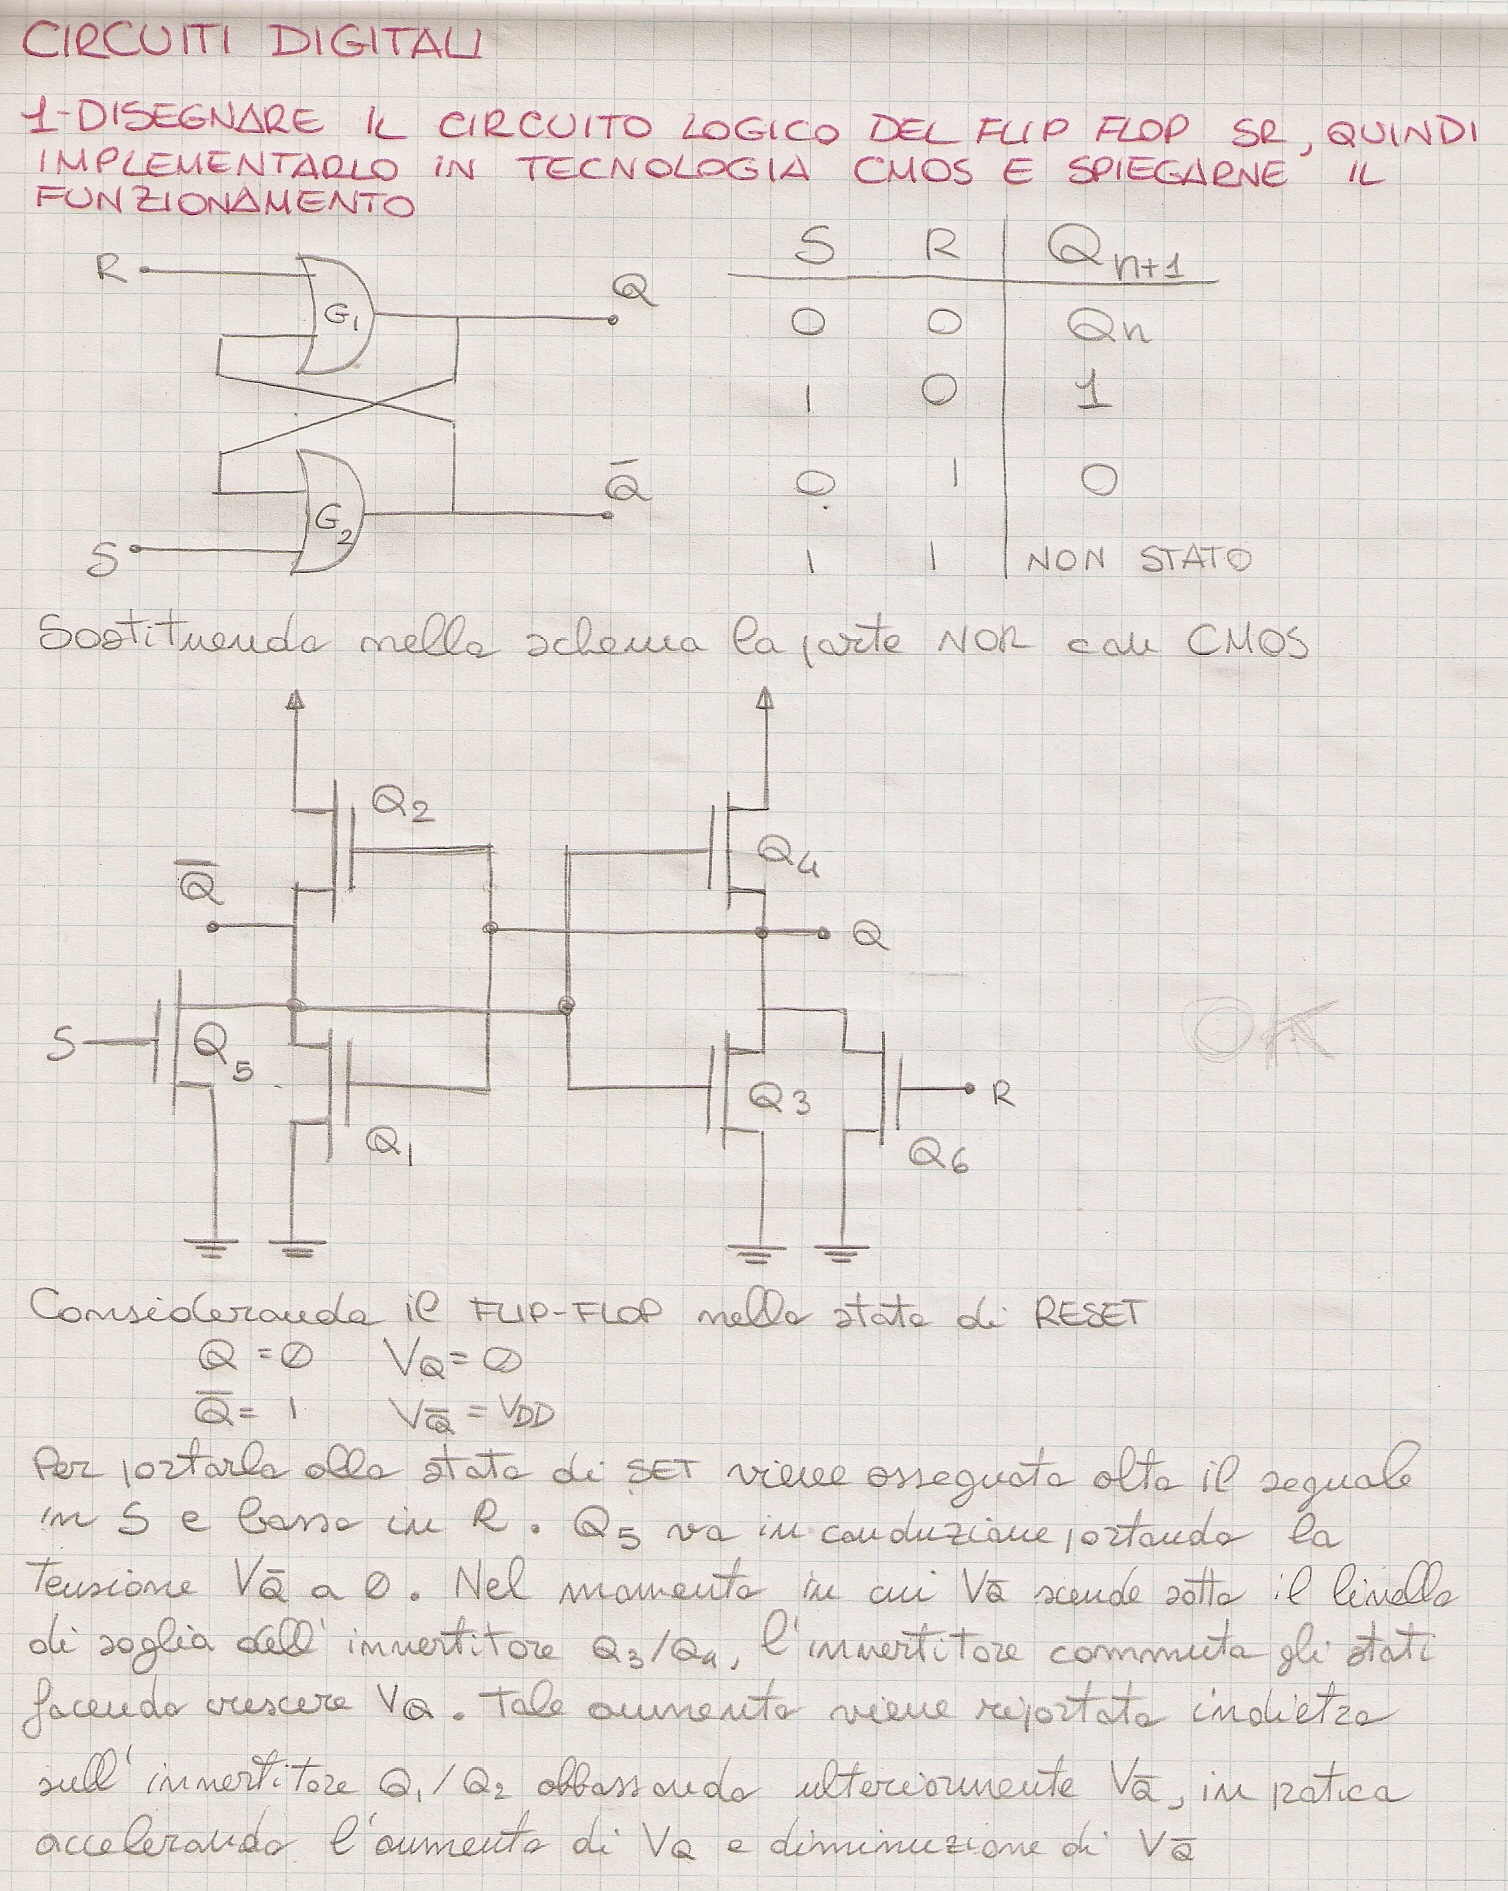 CIRCUITI DIGITALI
1-DISEGNARE IL CIRCUITO LOGICO DEL FLIP FLOP SR, QUINDI
IMPLEMENTARLO IN TECNOLOGIA CMOS E SPIEGARNE IL
FUNZIONAMENTO
R G1 Q
S G2 Q̅
S R Qn+1
0 0 Qn
1 0 1
0 1 0
1 1 NON STATO
Sostituendo nello schema la parte NOR con CMOS
Q2 Q4
Q̅ Q
S Q5 Q3 R
Q1 Q6
OK
Considerando il FLIP-FLOP nello stato di RESET
Q = 0 VQ = 0
Q̅ = 1 VQ̅ = VDD
Per portarlo allo stato di SET viene assegnato alto il segnale
in S e basso in R. Q5 va in conduzione portando la
tensione VQ̅ a 0. Nel momento in cui VQ̅ scende sotto il livello
di soglia dell' invertitore Q3/Q4, l'invertitore commuta gli stati
facendo crescere VQ. Tale aumento viene riportato indietro
sull' invertitore Q1/Q2 abbassando ulteriormente VQ̅, in pratica
accelerando l'aumento di VQ e diminuzione di VQ̅